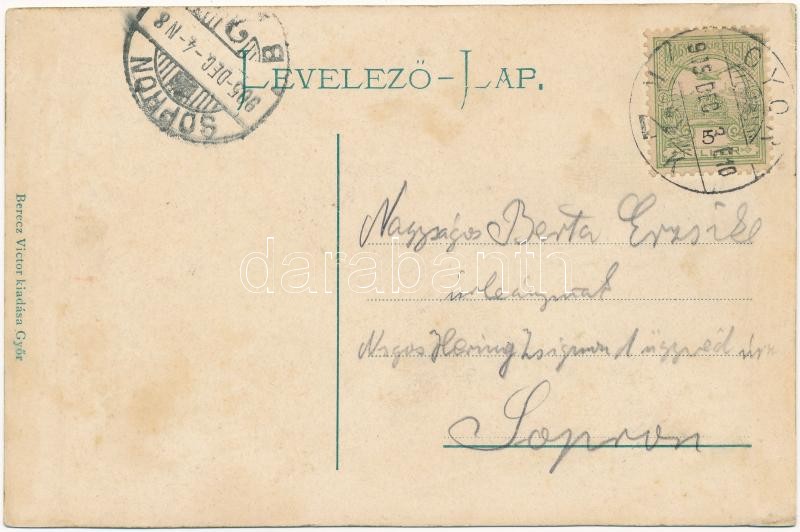 SOPRON
905-DEC-4-N8
B
LEVELEZŐ-LAP.
MAGYAR KIR. POSTA
5
GYŐR
905 DEC
Nagyságos Berta Erzsike
úrleánynak
Nagos Hering Zsigmond ügyvéd úr
Sopron
Berecz Victor kiadása Győr
darabanth